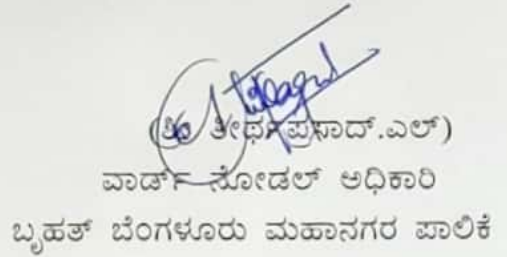 (ಶ್ರೀ ತೀರ್ಥಪ್ರಸಾದ್.ಎಲ್)
ವಾರ್ಡ್ ನೋಡಲ್ ಅಧಿಕಾರಿ
ಬೃಹತ್ ಬೆಂಗಳೂರು ಮಹಾನಗರ ಪಾಲಿಕೆ